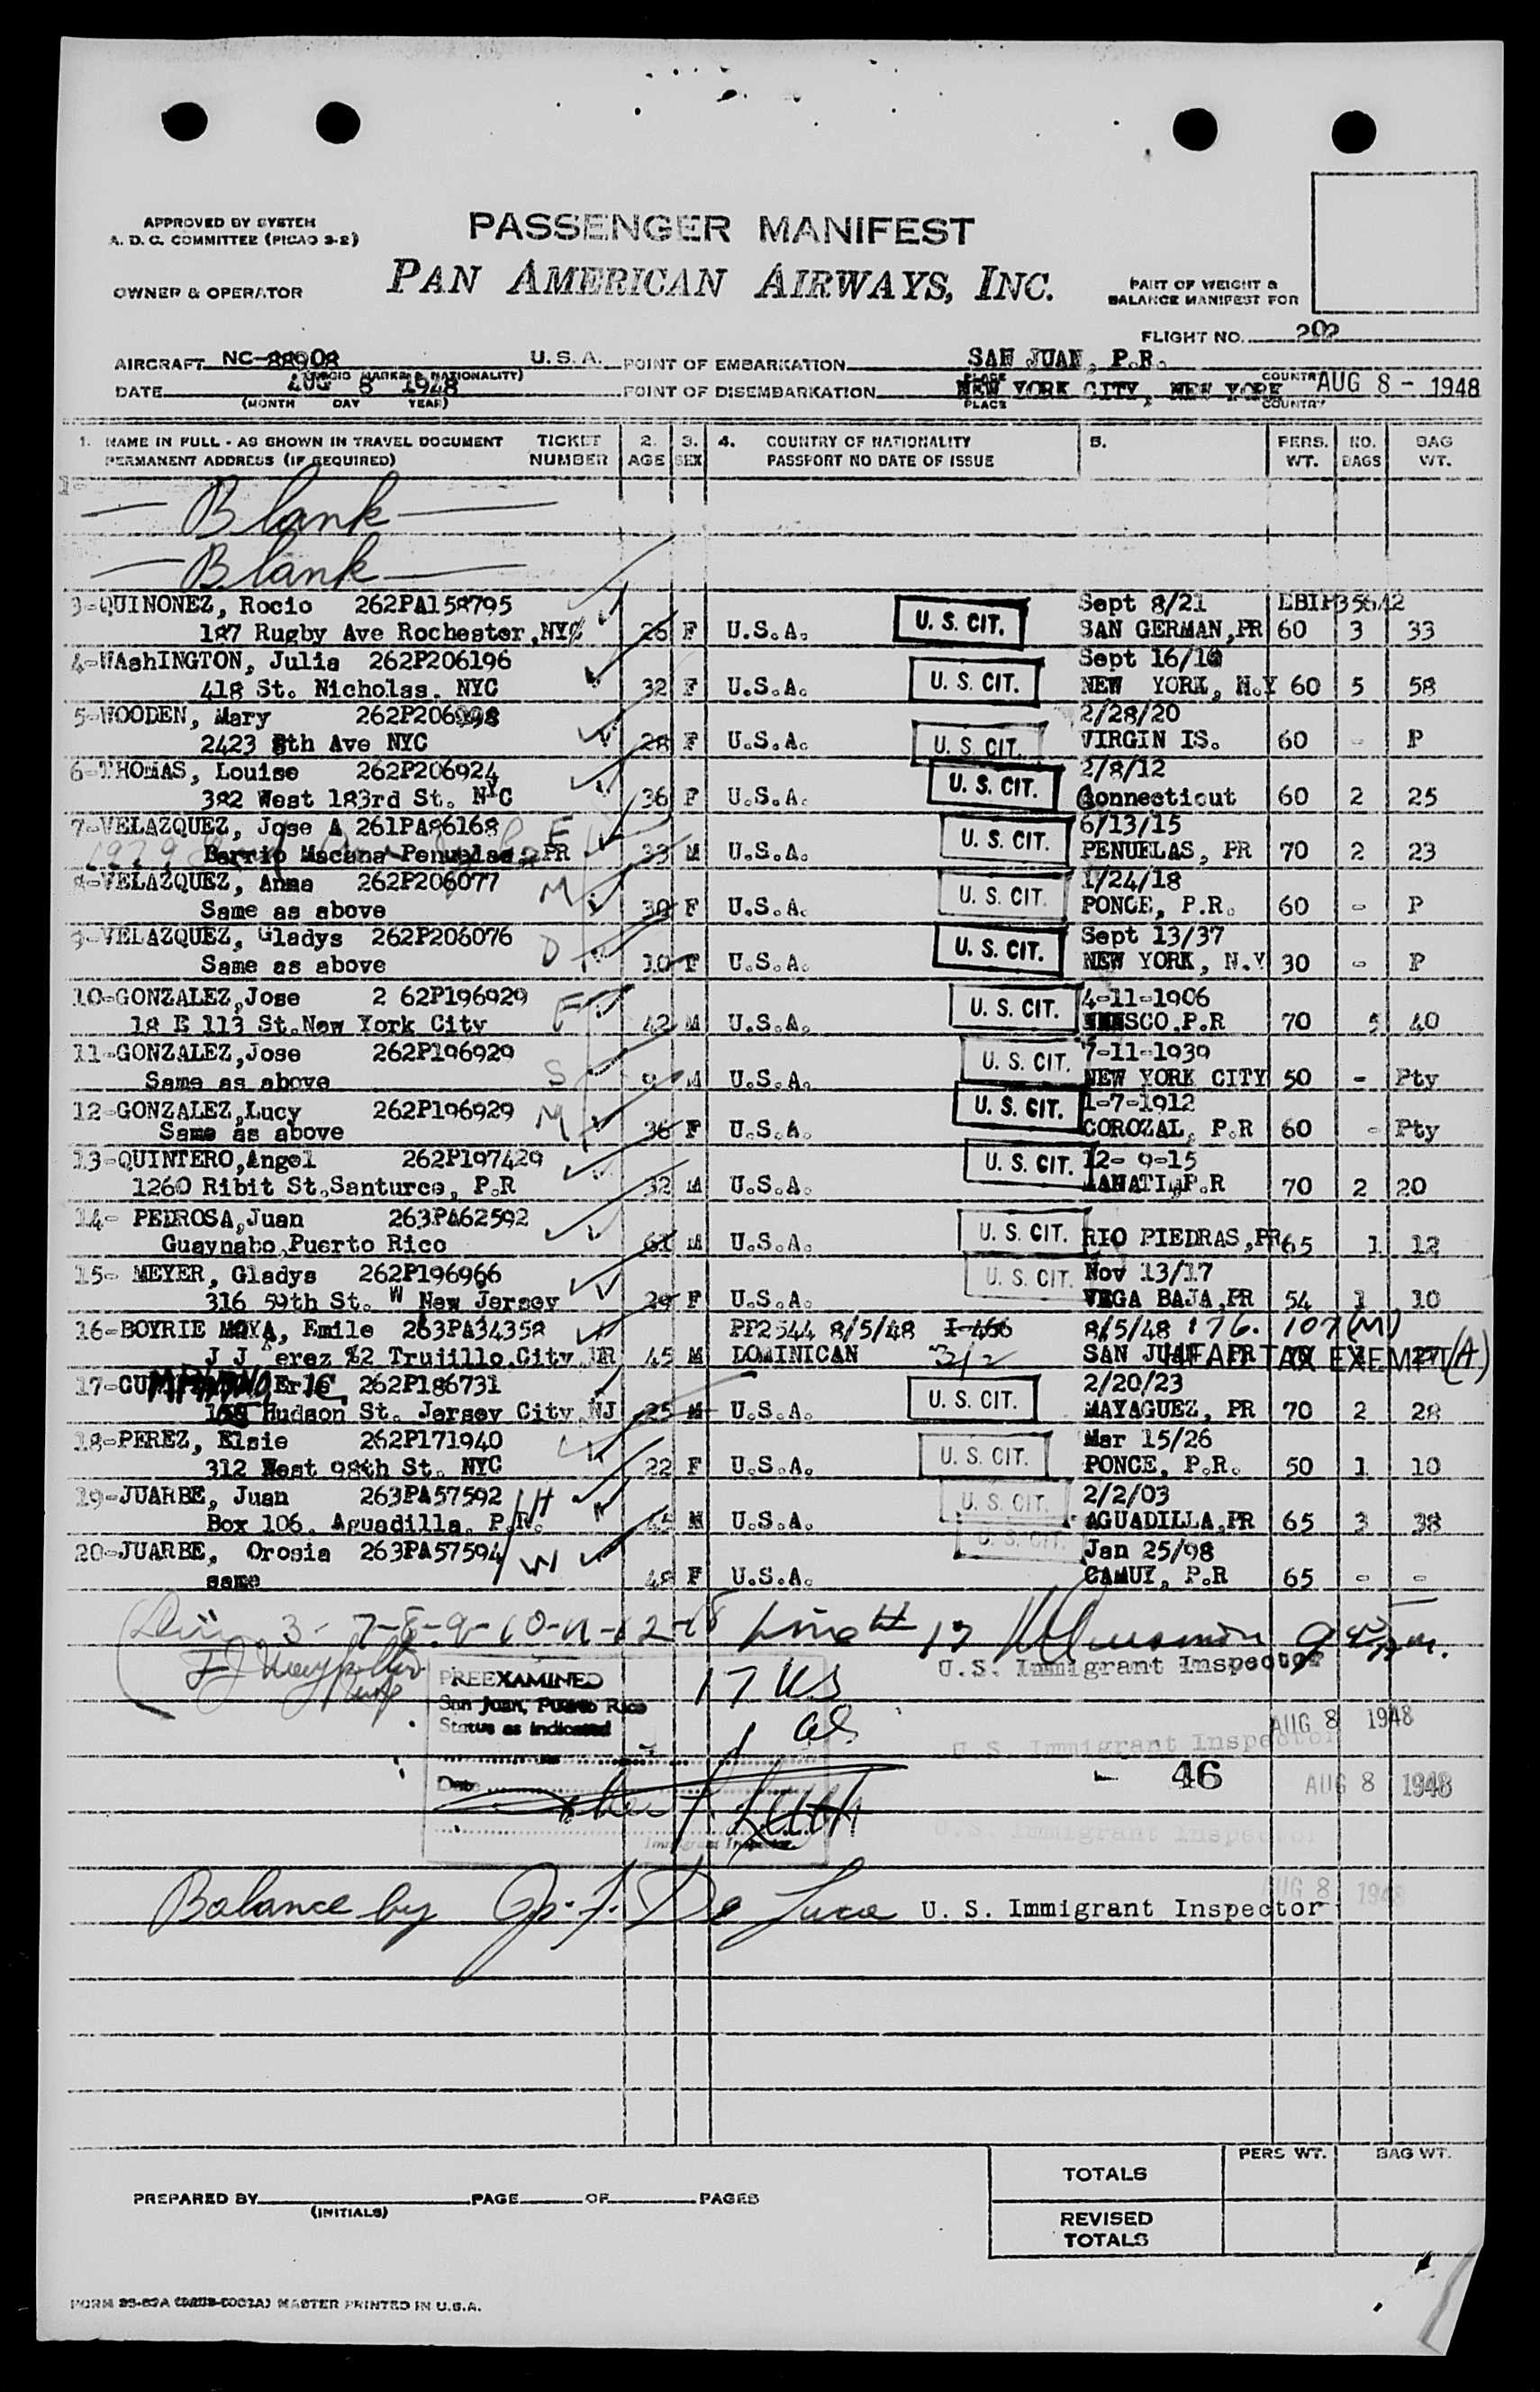 APPROVED BY SYSTEM
A. D. C. COMMITTEE (PICAO 3-2)
PASSENGER MANIFEST
PAN AMERICAN AIRWAYS, INC.
OWNER & OPERATOR
PART OF WEIGHT &
BALANCE MANIFEST FOR
FLIGHT NO. 202
AIRCRAFT NC-88908 U. S. A. POINT OF EMBARKATION SAN JUAN, P.R.
MARKS & NATIONALITY) PLACE COUNTRY
DATE AUG 8 1948 POINT OF DISEMBARKATION NEW YORK CITY, NEW YORK AUG 8 - 1948
(MONTH DAY YEAR) PLACE COUNTRY
1. NAME IN FULL - AS SHOWN IN TRAVEL DOCUMENT TICKET 2. 3. 4. COUNTRY OF NATIONALITY 5. PERS. NO. BAG
PERMANENT ADDRESS (IF REQUIRED) NUMBER AGE SEX PASSPORT NO DATE OF ISSUE WT. BAGS WT.
1-
— Blank —
— Blank —
3-QUINONEZ, Rocio 262PA158795 Sept 8/21
187 Rugby Ave Rochester, NYC 26 F U.S.A. U. S. CIT. SAN GERMAN, PR 60 3 33
4-WAshINGTON, Julia 262P206196 Sept 16/16
418 St. Nicholas. NYC 32 F U.S.A. U. S. CIT. NEW YORK, N.Y 60 5 58
5-WOODEN, Mary 262P206098 2/28/20
2423 8th Ave NYC 28 F U.S.A. U. S. CIT. VIRGIN IS. 60 - P
6-THOMAS, Louise 262P206924 2/8/12
382 West 183rd St. NYC 36 F U.S.A. U. S. CIT. Connecticut 60 2 25
7-VELAZQUEZ, Jose A 261PA86168 F 6/13/15
Barrio Macana Penuelas, PR 33 M U.S.A. U. S. CIT. PENUELAS, PR 70 2 23
8-VELAZQUEZ, Anna 262P206077 M 1/24/18
Same as above 30 F U.S.A. U. S. CIT. PONCE, P.R. 60 - P
9-VELAZQUEZ, Gladys 262P206076 D Sept 13/37
Same as above 10 F U.S.A. U. S. CIT. NEW YORK, N.Y 30 - P
10-GONZALEZ,Jose 2 62P196929 F 4-11-1906
18 E 113 St.New York City 42 M U.S.A. U. S. CIT. P.R 70 5 40
11-GONZALEZ,Jose 262P196929 S 7-11-1939
Same as above 9 M U.S.A. U. S. CIT. NEW YORK CITY 50 - Pty
12-GONZALEZ,Lucy 262P196929 M 1-7-1912
Same as above 36 F U.S.A. U. S. CIT. COROZAL, P.R 60 - Pty
13-QUINTERO,Angel 262P197429 12- 9-15
1260 Ribit St.Santurce, P.R 32 M U.S.A. U. S. CIT. MANATI, P.R 70 2 20
14- PEDROSA,Juan 263PA62592
Guaynabo,Puerto Rico 61 M U.S.A. U. S. CIT. RIO PIEDRAS,PR 65 1 12
15- MEYER, Gladys 262P196966 Nov 13/17
316 59th St. W New Jersey 29 F U.S.A. U. S. CIT. VEGA BAJA,PR 54 1 10
16-BOYRIE MOYA, Emile 263PA34358 PP2544 8/5/48 I-466 8/5/48 176. 107(M)
J J Perez %2 Trujillo.City DR 45 M DOMINICAN 3/2 SAN JUAN PR TAX EXEMPT (A)
17- Eric 262P186731 2/20/23
158 Hudson St. Jersey City NJ 25 M U.S.A. U. S. CIT. MAYAGUEZ, PR 70 2 28
18-PEREZ, Elsie 262P171940 Mar 15/26
312 West 98th St. NYC 22 F U.S.A. U. S. CIT. PONCE, P.R. 50 1 10
19-JUARBE, Juan 263PA57592 H 2/2/03
Box 106. Aguadilla. P.R. 45 M U.S.A. U. S. CIT. AGUADILLA,PR 65 3 38
20-JUARBE, Orosia 263PA57594 W U. S. CIT. Jan 25/98
same 48 F U.S.A. CAMUY, P.R 65 - -
3- 7-8-9-10-11-12-18 17
U.S. Immigrant Inspector
PREEXAMINED 17 US
San Juan, Puerto Rico
Status as indicated 1
AUG 8 1948
U.S. Immigrant Inspector
Date
46 AUG 8 1948
U.S. Immigrant Inspector
Immigrant Inspector
AUG 8 1948
Balance by Jos. F. De Luca U. S. Immigrant Inspector
PERS WT. BAG WT.
TOTALS
PREPARED BY PAGE OF PAGES
(INITIALS)
REVISED
TOTALS
MASTER PRINTED IN U.S.A.